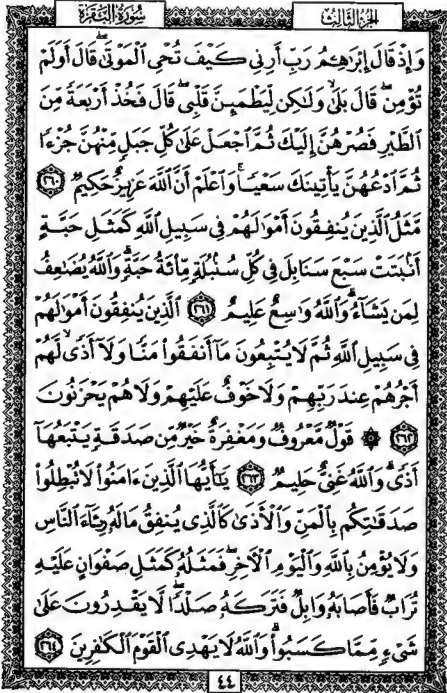 الجزء الثالث
سورة البقرة
وَإِذْ قَالَ إِبْرَٰهِـۧمُ رَبِّ أَرِنِي كَيْفَ تُحْيِ ٱلْمَوْتَىٰ ۖ قَالَ أَوَلَمْ
تُؤْمِن ۖ قَالَ بَلَىٰ وَلَـٰكِن لِّيَطْمَئِنَّ قَلْبِي ۖ قَالَ فَخُذْ أَرْبَعَةً مِّنَ
ٱلطَّيْرِ فَصُرْهُنَّ إِلَيْكَ ثُمَّ ٱجْعَلْ عَلَىٰ كُلِّ جَبَلٍ مِّنْهُنَّ جُزْءًا
ثُمَّ ٱدْعُهُنَّ يَأْتِينَكَ سَعْيًا ۚ وَٱعْلَمْ أَنَّ ٱللَّهَ عَزِيزٌ حَكِيمٌ ٢٦٠
مَّثَلُ ٱلَّذِينَ يُنفِقُونَ أَمْوَٰلَهُمْ فِي سَبِيلِ ٱللَّهِ كَمَثَلِ حَبَّةٍ
أَنۢبَتَتْ سَبْعَ سَنَابِلَ فِي كُلِّ سُنۢبُلَةٍ مِّا۟ئَةُ حَبَّةٍ ۗ وَٱللَّهُ يُضَـٰعِفُ
لِمَن يَشَآءُ ۗ وَٱللَّهُ وَٰسِعٌ عَلِيمٌ ٢٦١ ٱلَّذِينَ يُنفِقُونَ أَمْوَٰلَهُمْ
فِي سَبِيلِ ٱللَّهِ ثُمَّ لَا يُتْبِعُونَ مَآ أَنفَقُوا۟ مَنًّا وَلَآ أَذًى ۙ لَّهُمْ
أَجْرُهُمْ عِندَ رَبِّهِمْ وَلَا خَوْفٌ عَلَيْهِمْ وَلَا هُمْ يَحْزَنُونَ
٢٦٢ ۞ قَوْلٌ مَّعْرُوفٌ وَمَغْفِرَةٌ خَيْرٌ مِّن صَدَقَةٍ يَتْبَعُهَآ
أَذًى ۗ وَٱللَّهُ غَنِيٌّ حَلِيمٌ ٢٦٣ يَـٰٓأَيُّهَا ٱلَّذِينَ ءَامَنُوا۟ لَا تُبْطِلُوا۟
صَدَقَـٰتِكُم بِٱلْمَنِّ وَٱلْأَذَىٰ كَٱلَّذِي يُنفِقُ مَالَهُۥ رِئَآءَ ٱلنَّاسِ
وَلَا يُؤْمِنُ بِٱللَّهِ وَٱلْيَوْمِ ٱلْـَٔاخِرِ ۖ فَمَثَلُهُۥ كَمَثَلِ صَفْوَانٍ عَلَيْهِ
تُرَابٌ فَأَصَابَهُۥ وَابِلٌ فَتَرَكَهُۥ صَلْدًا ۖ لَّا يَقْدِرُونَ عَلَىٰ
شَيْءٍ مِّمَّا كَسَبُوا۟ ۗ وَٱللَّهُ لَا يَهْدِي ٱلْقَوْمَ ٱلْكَـٰفِرِينَ ٢٦٤
٤٤